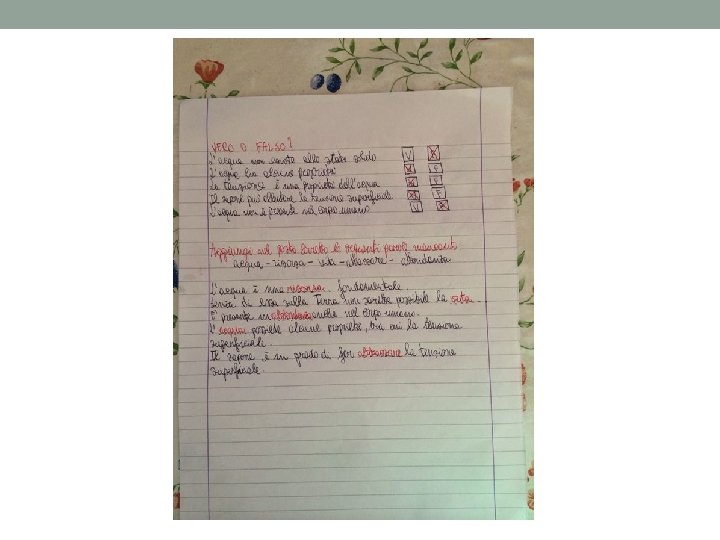 VERO O FALSO?
L'acqua non esiste allo stato solido V X
L'acqua ha alcune proprietà X F
La tensione è una proprietà dell'acqua X F
Il sapone può abbattere la tensione superficiale X F
L'acqua non è presente nel corpo umano V X
Aggiungi nel posto corretto le seguenti parole mancanti
acqua - risorsa - vita - abbassare - abbondanza
L'acqua è una risorsa fondamentale.
Senza di essa sulla Terra non sarebbe possibile la vita.
È presente in abbondanza anche nel corpo umano.
L'acqua possiede alcune proprietà, tra cui la tensione
superficiale.
Il sapone è in grado di far abbassare la tensione
superficiale.